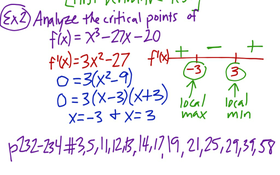 Ex2) Analyze the critical points of
f(x) = x³ - 27x - 20
f'(x) = 3x² - 27
0 = 3(x² - 9)
0 = 3(x - 3)(x + 3)
x = -3 & x = 3
f'(x) + - +
-3 3
local max
local min
p232-234 #3,5,11,12,13,14,17,19, 21, 25, 29, 39, 58